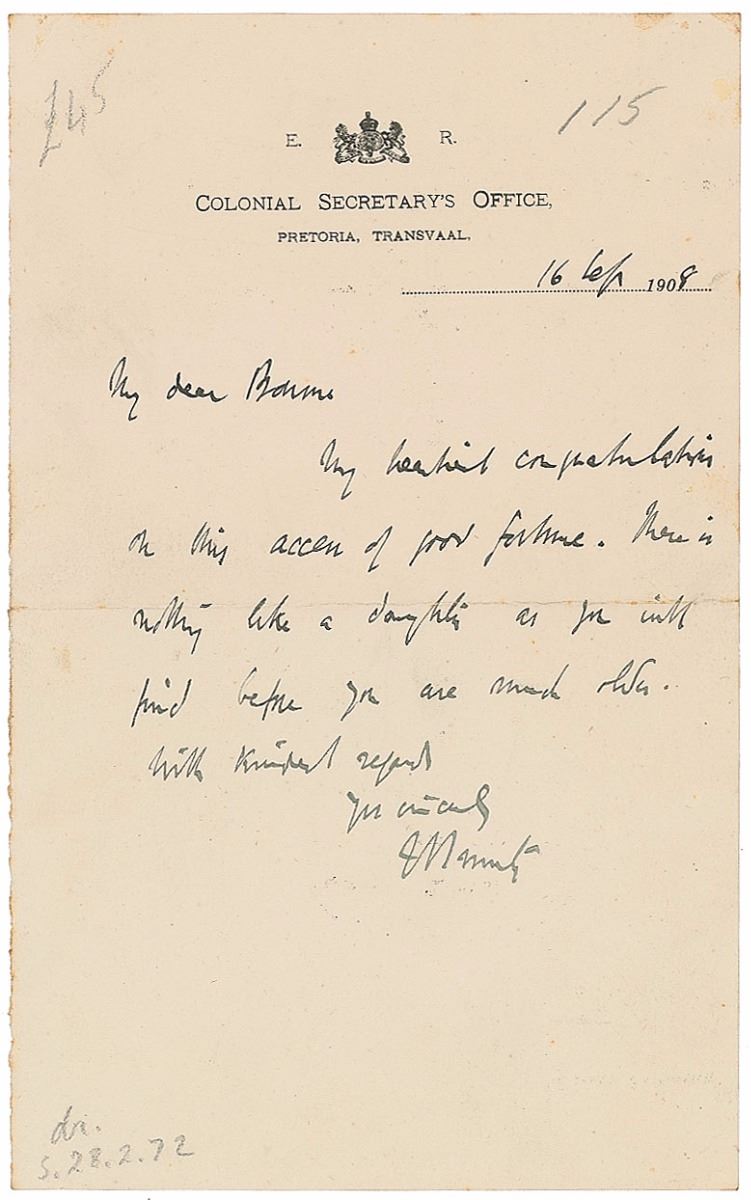 £45
115
E. R.
COLONIAL SECRETARY'S OFFICE,
PRETORIA, TRANSVAAL,
16 Sep 1908
My dear Bourne
My heartiest congratulations
on this access of good fortune. There is
nothing like a daughter as you will
find before you are much older.
With kindest regards
Yrs sincerely
J C Smuts
S. 28.2.72